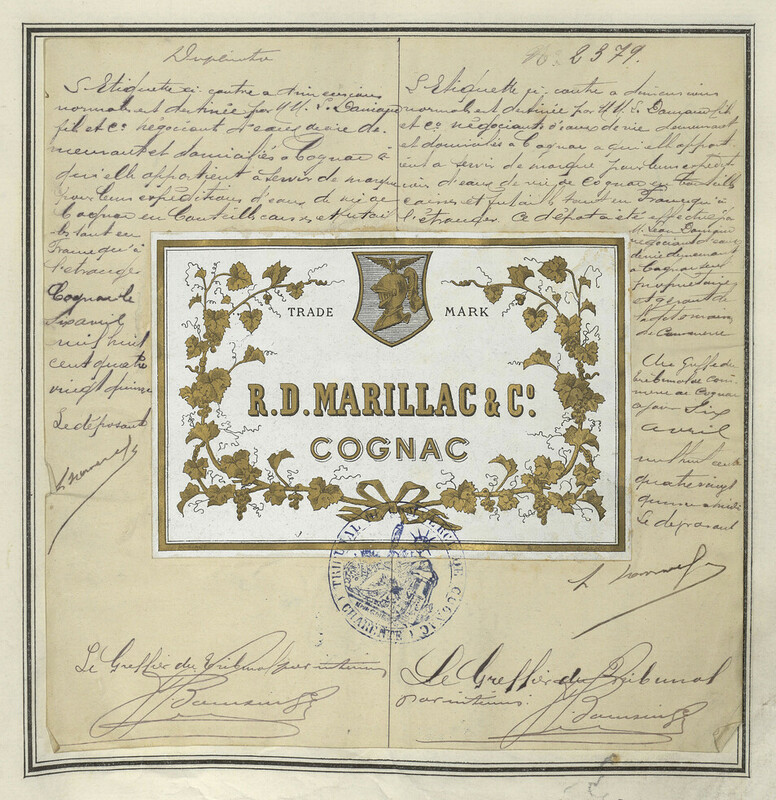 Duplicata
L'Etiquette ci contre a dimensions
normales est destinée par MM. L. Damiaud
fils et Cº négociant d'eaux de vie de-
meurant et domiciliés à Cognac à
qui elle appartient à servir de marque
pour leurs expéditions d'eaux de vie de
Cognac en bouteilles caisses et futail-
les tant en
France qu'à
l'étranger
Cognac le
six avril
mil huit
cent quatre
vingt quinze
Le déposant
Nº 2379.
L'Etiquette ci contre à dimensions
normales est destinée par MM. L. Damiaud fils
et Cº négociants d'eaux de vie demeurant
et domiciliés à Cognac à qui elle appart-
ient à servir de marque pour leurs expédit-
ions d'eaux de vie de Cognac en bouteilles
caisses et futails tant en France qu'à
l'étranger. Ce dépôt a été effectué par
M. Jean Damiaud
négociant d'eaux
de vie demeurant
à Cognac
propriétaire
et gérant de
la dite maison
de Commerce
Au Greffe du
tribunal de com-
merce de Cognac
ce jour six
avril
mil huit cent
quatre vingt
quinze
Le déposant
TRADE MARK
R.D. MARILLAC & Cº.
COGNAC
TRIBUNAL DE COMMERCE DE COGNAC
(CHARENTE)
Le Greffier du Tribunal par intérim
Le Greffier du Tribunal
par intérim.